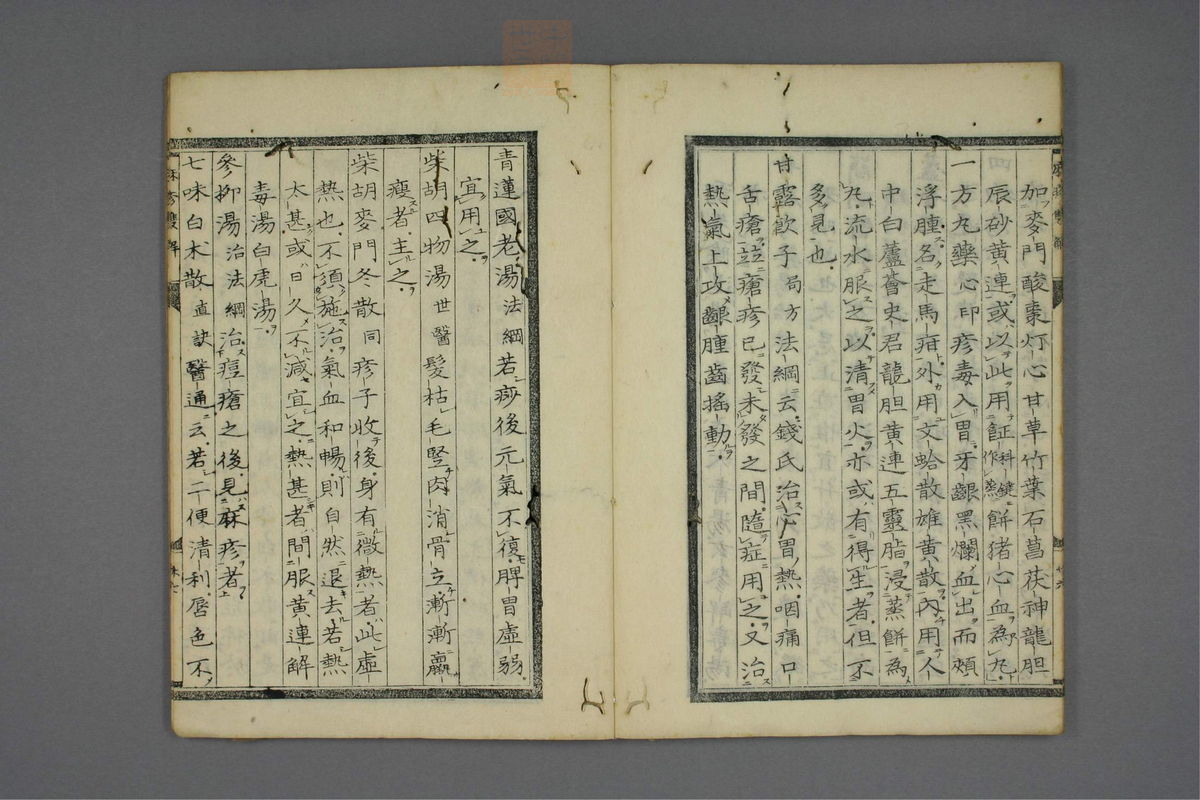 加麥門酸棗灯心甘草竹葉石菖茯神龍胆
辰砂黄連或以此用飪作蒸餅猪心血為丸
一方丸藥心印疹毒入胃牙齦黑爛血出而頰
浮腫名走馬疳外用文蛤散雄黄散內用人
中白蘆薈史君龍胆黄連五靈脂浸蒸餅為
丸流水服之以清胃火亦或有得生者但不
多見也
甘露飲子局方法綱云錢氏治心胃熱咽痛口
舌瘡竝瘡疹已發未發之間隨症用之又治
熱氣上攻齦腫齒搖動
青蓮國老湯法綱若痧後元氣不復脾胃虛弱
宜用之
柴胡四物湯世醫髮枯毛竪肉消骨立漸漸羸
瘦者主之
柴胡麥門冬散同疹子收後身有微熱者此虛
熱也不須施治氣血和暢則自然退去若熱
太甚或日久不減宜之熱甚者間服黄連解
毒湯白虎湯
參柳湯治法綱治痘瘡之後見麻疹者
七味白朮散直訣醫通云若二便清利唇色不